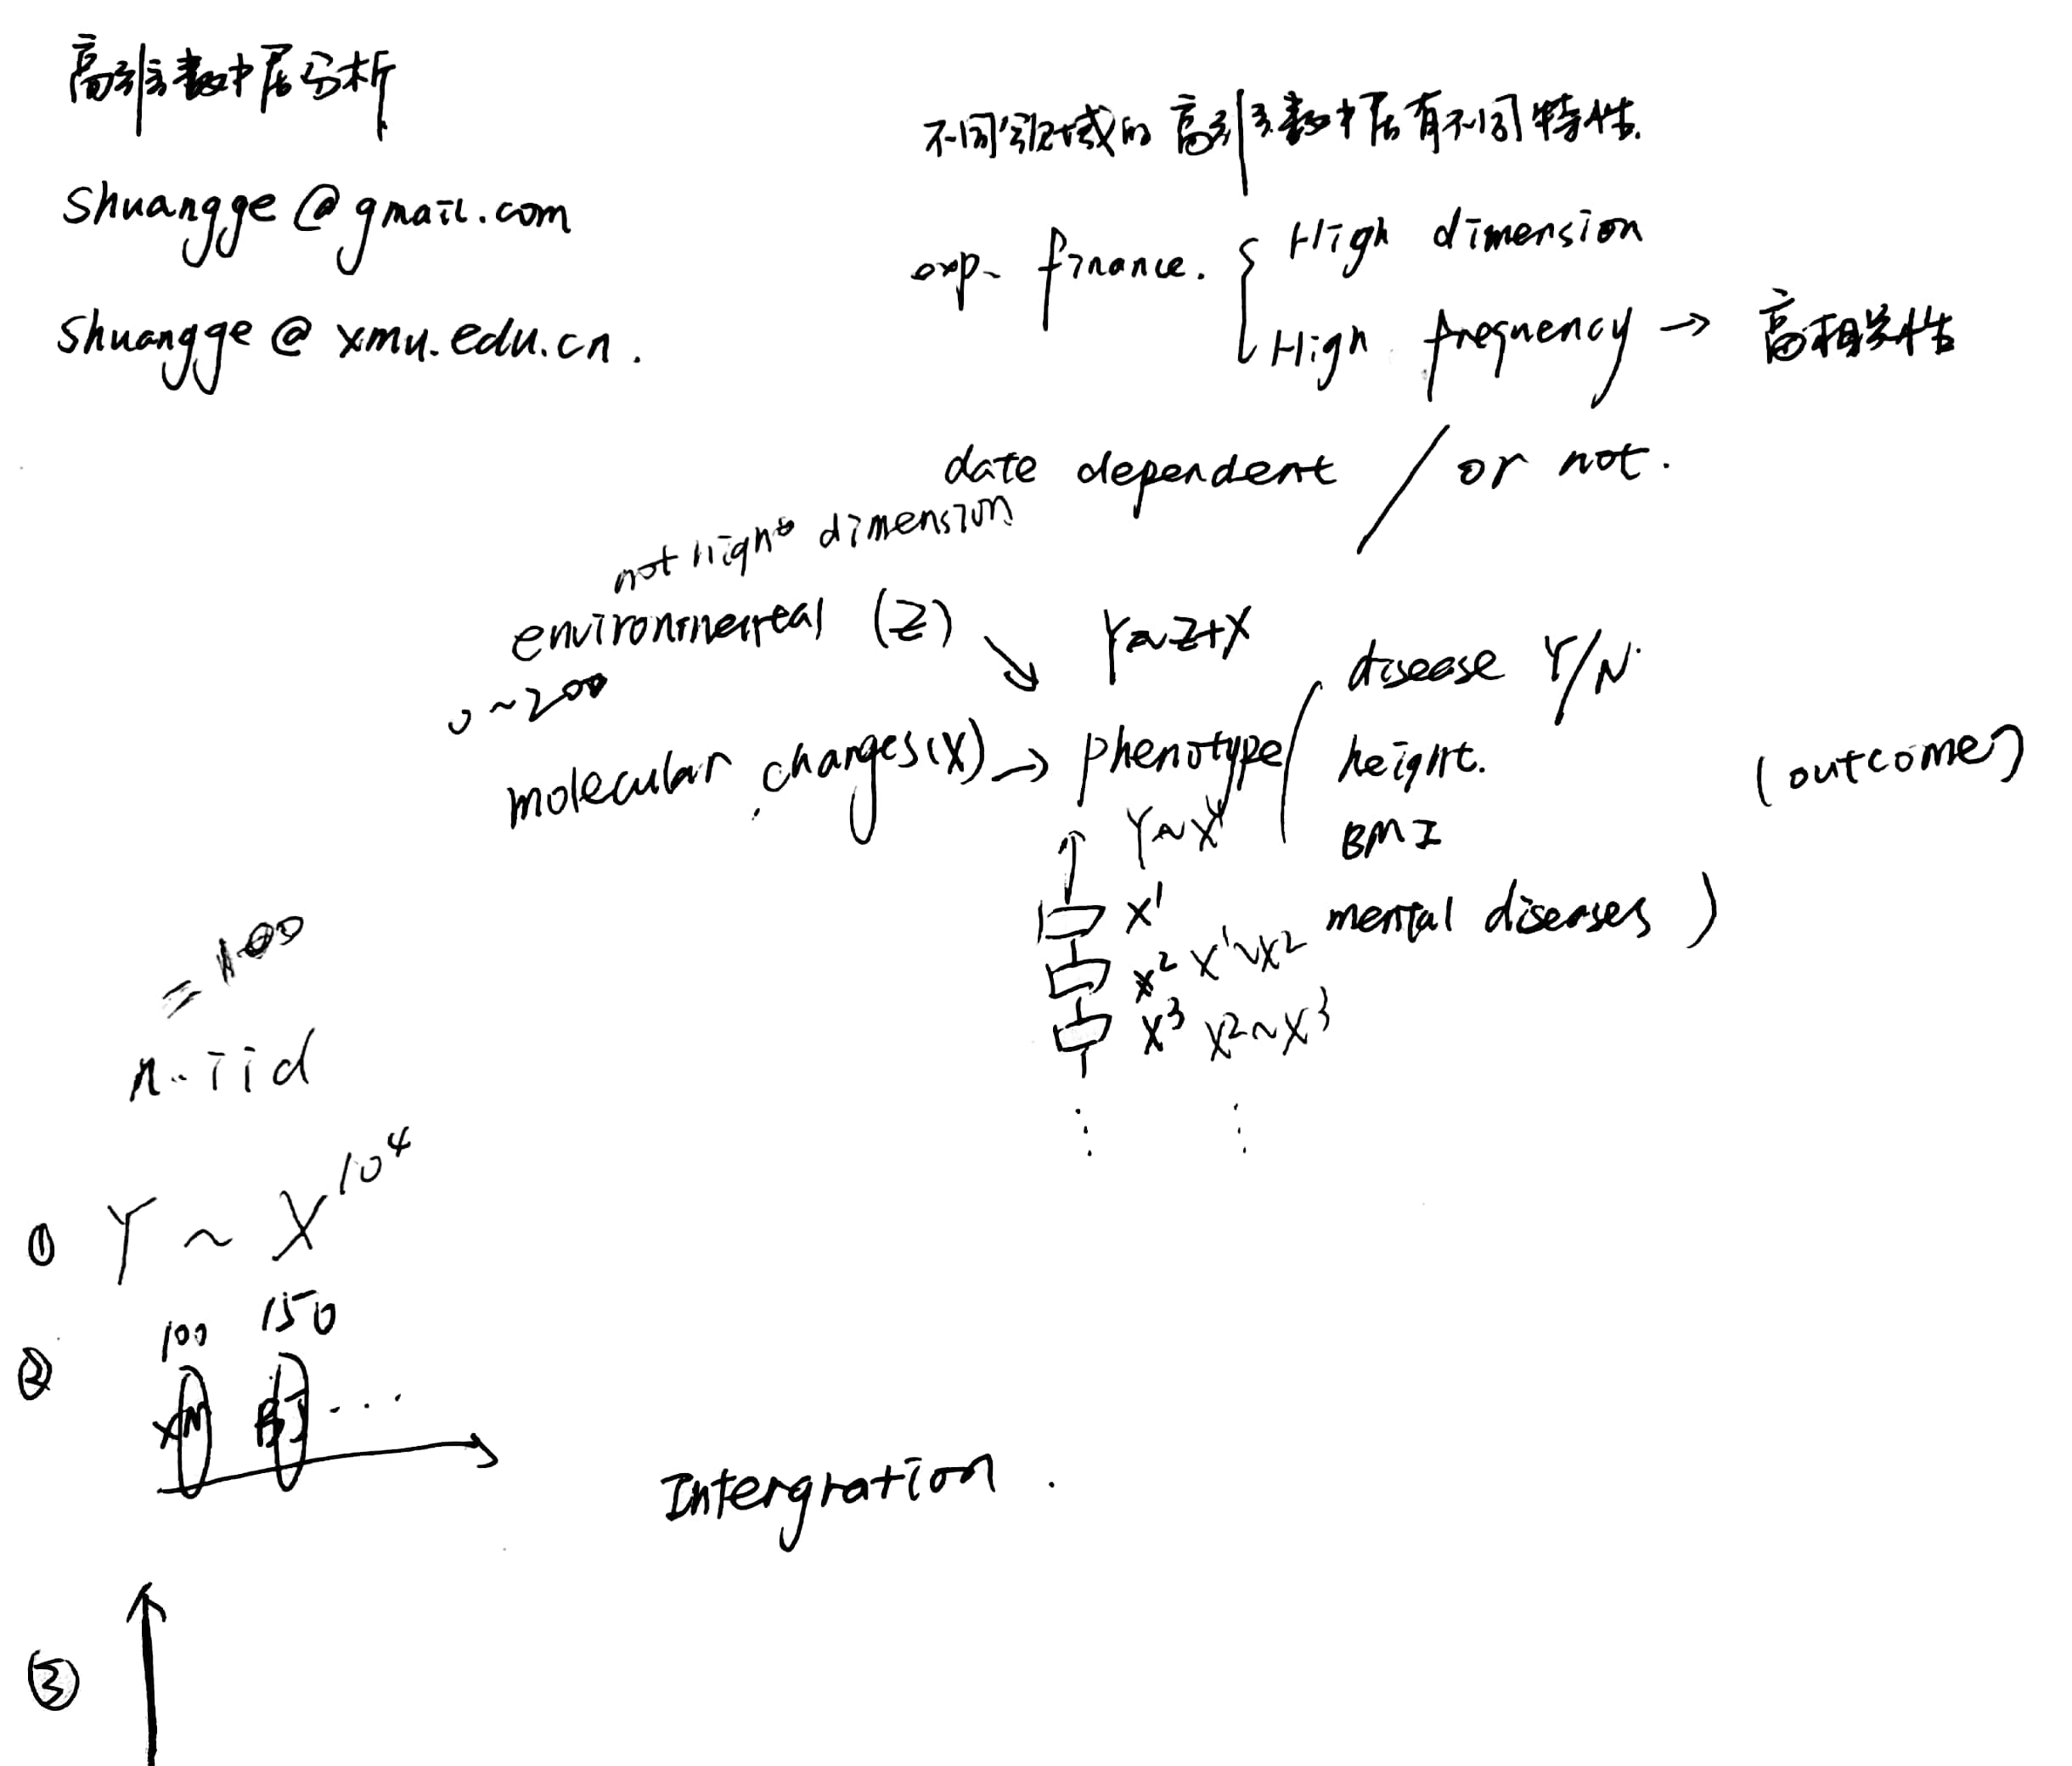 高维数据分析
shuangge@gmail.com
shuangge@xmu.edu.cn.
不同领域的高维数据有不同特性.
exp. finance. { High dimension
High frequency → 高相关性
date dependent / or not.
not high dimension
environmental (Z)
Y~Z+X
0~200
molecular changes(X) → phenotype
disease Y/N.
height.
BMI
mental diseases )
(outcome)
Y~X'
X¹
X² X¹~X²
X³ X²~X³
⋮ ⋮
n iid
① Y ~ X 10⁴
② 100 150
XM BJ ...
Intergration.
③